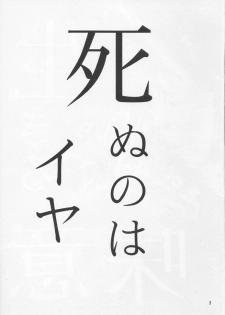 死ぬのは
イヤ